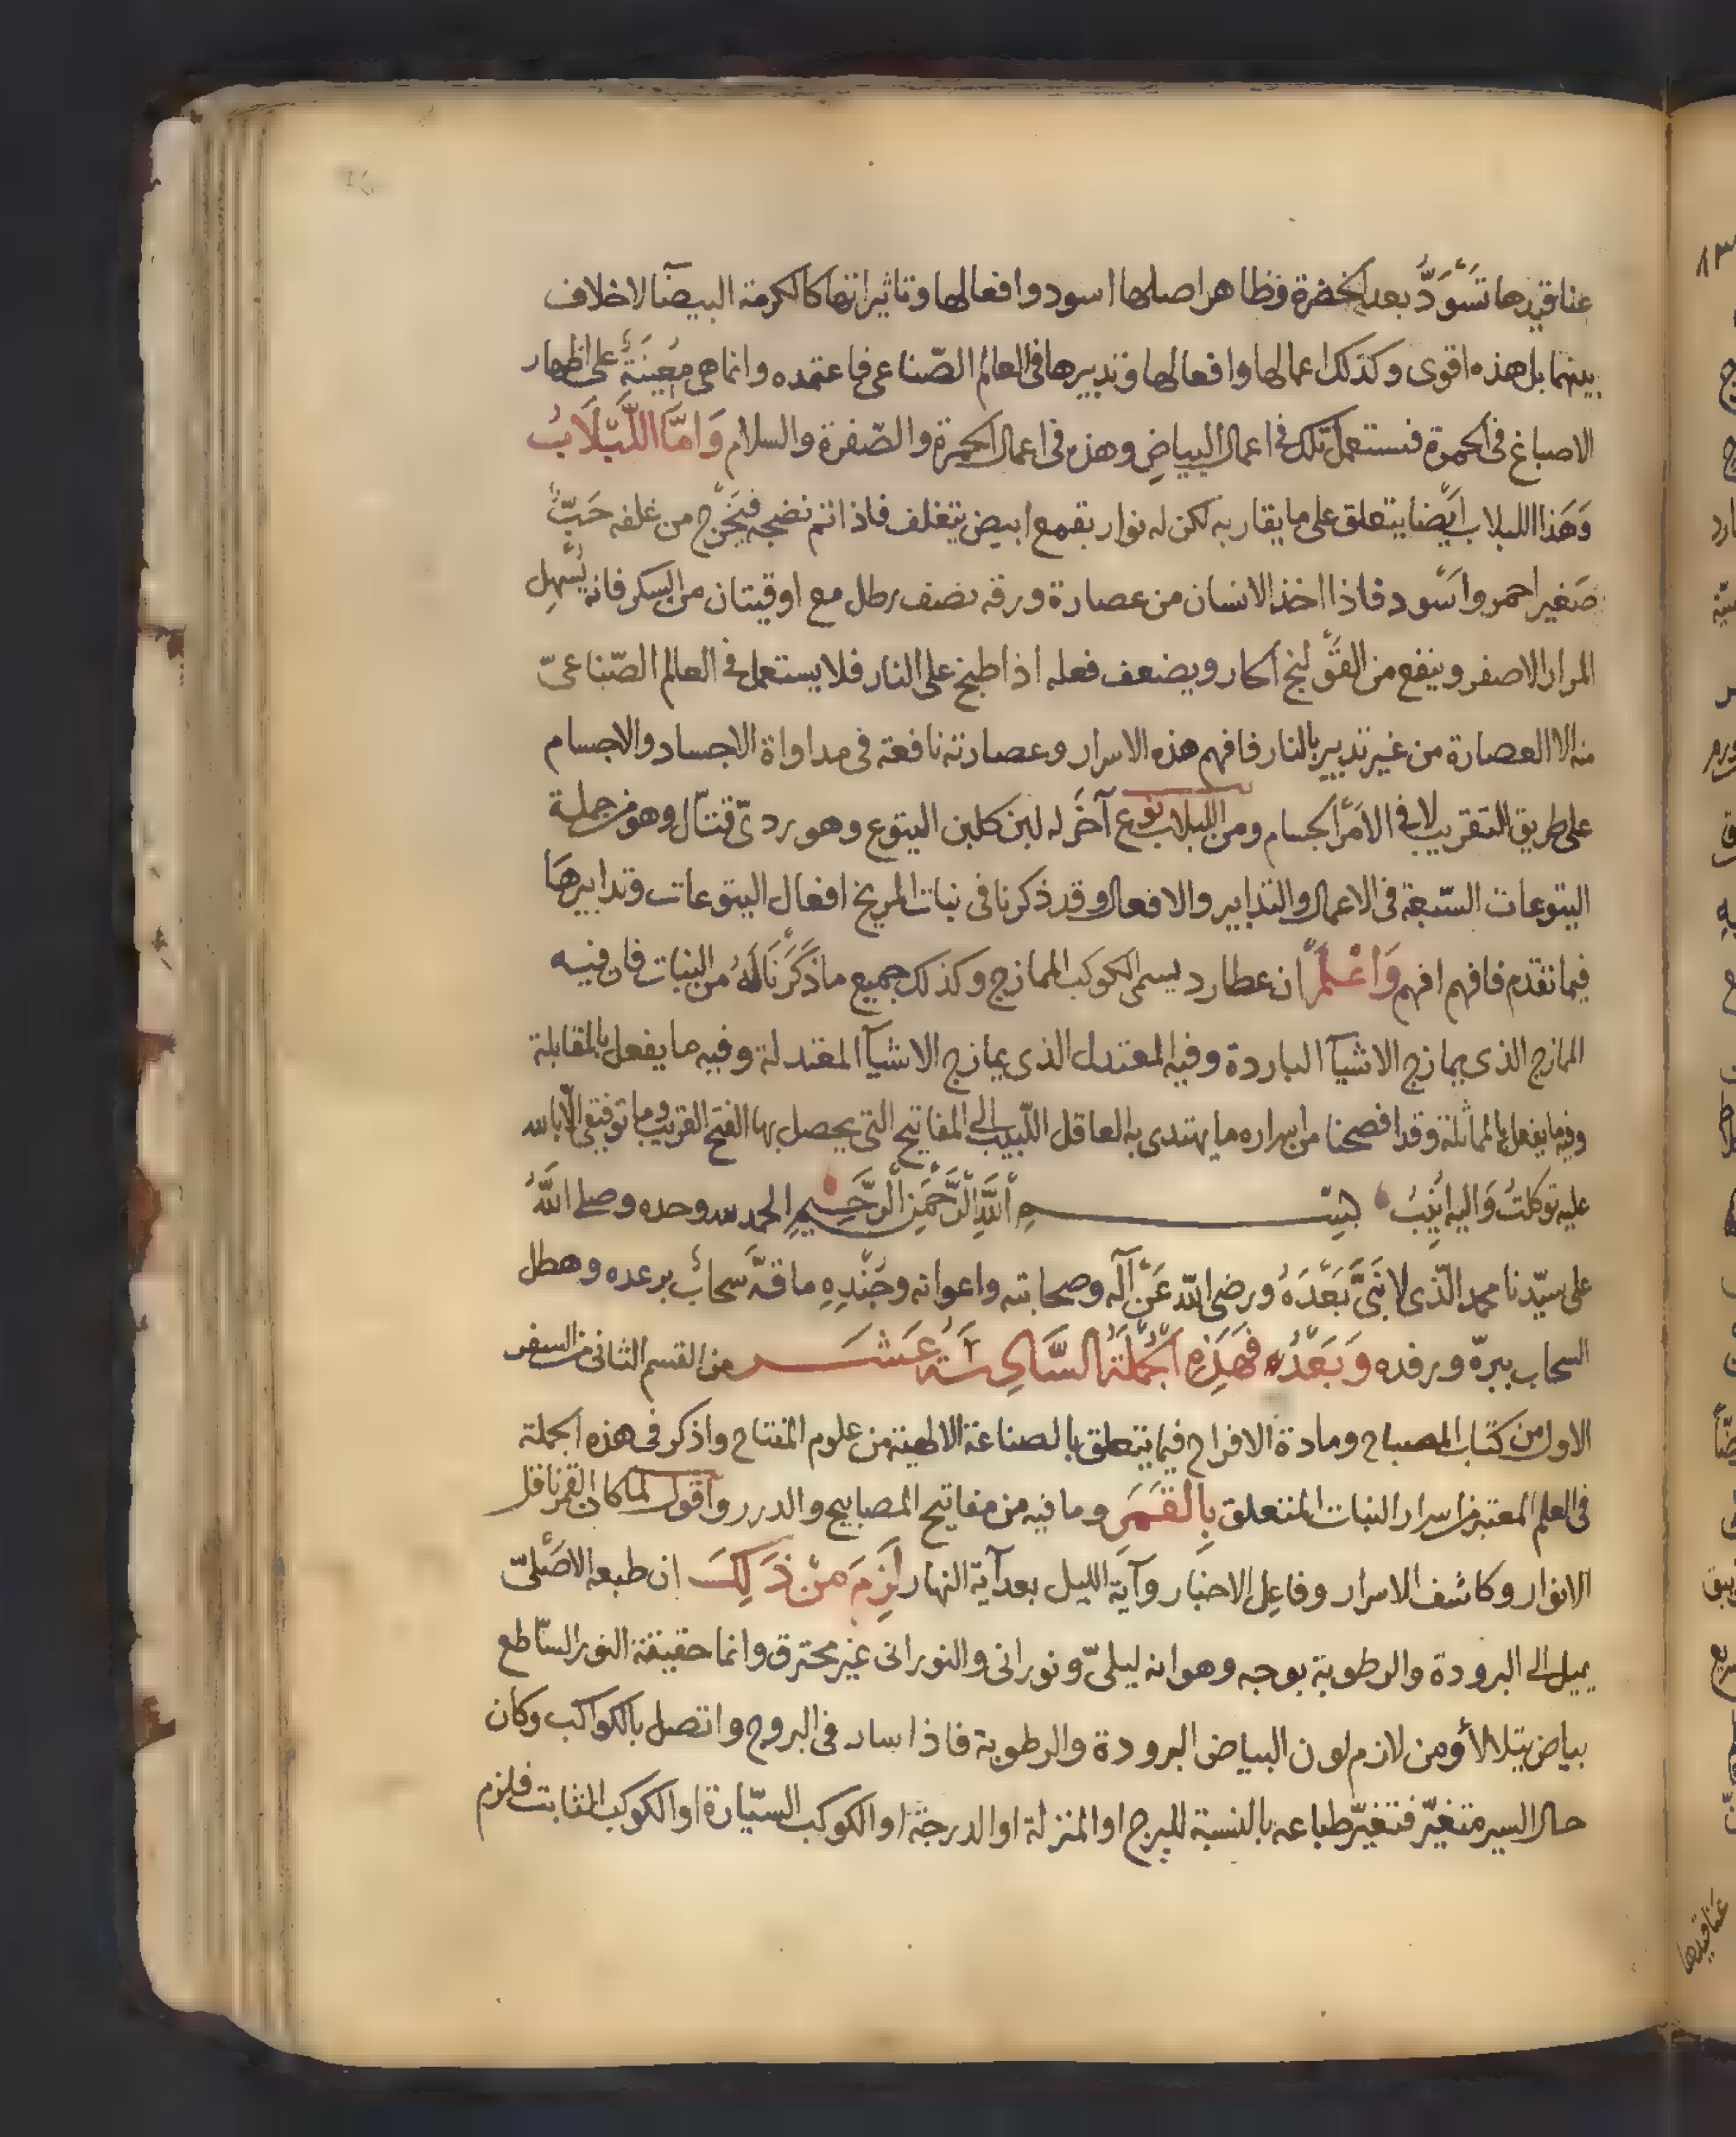 عناقيدها تَسْوَدُّ بعد الخضرة وظاهر اصلها اسود وافعالها وتاثيراتها كالكرمة البيضآ لا خلاف
بينهما بل هذه اقوى وكذلك اعمالها وافعالها وتدبيرها فى العالم الصّناعى فاعتمده وانما هى مُعِينَةٌ على اظهار
الاصباغ فى الحمرة فتستعمل تلك فى اعمال البياضِ وهذه فى اعمال الحمرة والصّفرة والسلام وَامَّا اللَّبْلَابُ
وَهَذا اللبلاب ايْضا يتعلق على ما يقاربه لكن له نوار بقمع ابيض يتغلف فاذا تم نضجه فيَخْرج من غلفه حَبٌّ
صَغير احمر واسْود فاذا اخذ الانسان من عصارة ورقه نصف رطل مع اوقيتان من السكر فانه يُسْهِل
المرار الاصفر وينفع من القَوْلنج الحار ويضعف فعله اذا طبخ على النار فلا يستعمل فى العالم الصّناعىّ
منه الا العصارة من غير تدبير بالنار فافهم هذه الاسرار وعصارته نافعة فى مداواة الاجساد والاجسام
على طريق التقريب لا فى الامْر الجسام ومن اللبلاب نوع آخَر له لبن كلبن اليتوع وهو ردىّ قتّال وهو من جملة
اليتوعات السّبعة فى الاعمال والتدابير والافعال وقد ذكرنا فى نبات المريخ افعال اليتوعات وتدابيرهَا
فيما تقدم فافهم افهم وَاعْلمْ ان عطارد يسمى الكوكب الممازج وكذلك جميع ما ذَكَرْنَا لَهُ من النبات فان فيه
الممازج الذى يمازج الاشيآ الباردة وفيه المعتدل الذى يمازج الاشيآ المعتدلة وفيه ما يفعل بالمقابلة
وفيه ما يفعل بالمماثلة وقد افصحنا من اسراره ما يهتدى به العاقل اللّبيب الى المفاتيح التى يحصل بها الفتح القريب وما توفيقى الّا بالله
عليه توكلتُ وَاليه اُنِيبُ بِسْمِ اللَّهِ الرَّحْمَنِ الرَّحِيمِ الحمد لله وحده وصلى اللَّهُ
على سيّدنا محمد الّذى لا نَبىَّ بَعْدَهُ ورضى اللّه عَنْ آله وصحابته واعوانه وجُنْدِهِ ما قهَّ سَحابٌ برعده وهطل
السحاب ببرّه ورفده وَبَعْدُ فهَذِهِ الجُمْلَةُ السَّادِسَةَ عَشَر من القسم الثانى من السفر
الاول من كتاب المصباح ومادة الافراح فيما يتعلق بالصناعة الالهية من علوم المفتاح واذكر فى هذه الجملة
فى العلم المعتبر من اسرار النبات المتعلق بِالقَمَرِ وما فيه من مفاتيح المصابيح والدرر واقول لما كان القمر ناقل
الانوار وكاشف الاسرار وفاعِل الاحبَار وآية الليل بعد آية النهار لَزِمَ منْ ذَلِكَ ان طبعه الاصْلىّ
يميل الى البرودة والرطوبة بوجه وهو انه ليلىّ ونورانى والنورانى غير محترق وانما حقيقة النور السّاطع
بياض يتلالأ ومن لازم لون البياض البرودة والرطوبة فاذا سار فى البروج واتصل بالكواكب وكان
حال السير متغيّر فتغيّر طباعه بالنسبة للبرج او المنزلة او الدرجة او الكوكب السيّارة او الكوكب الثابت فلزم
عناقيدها